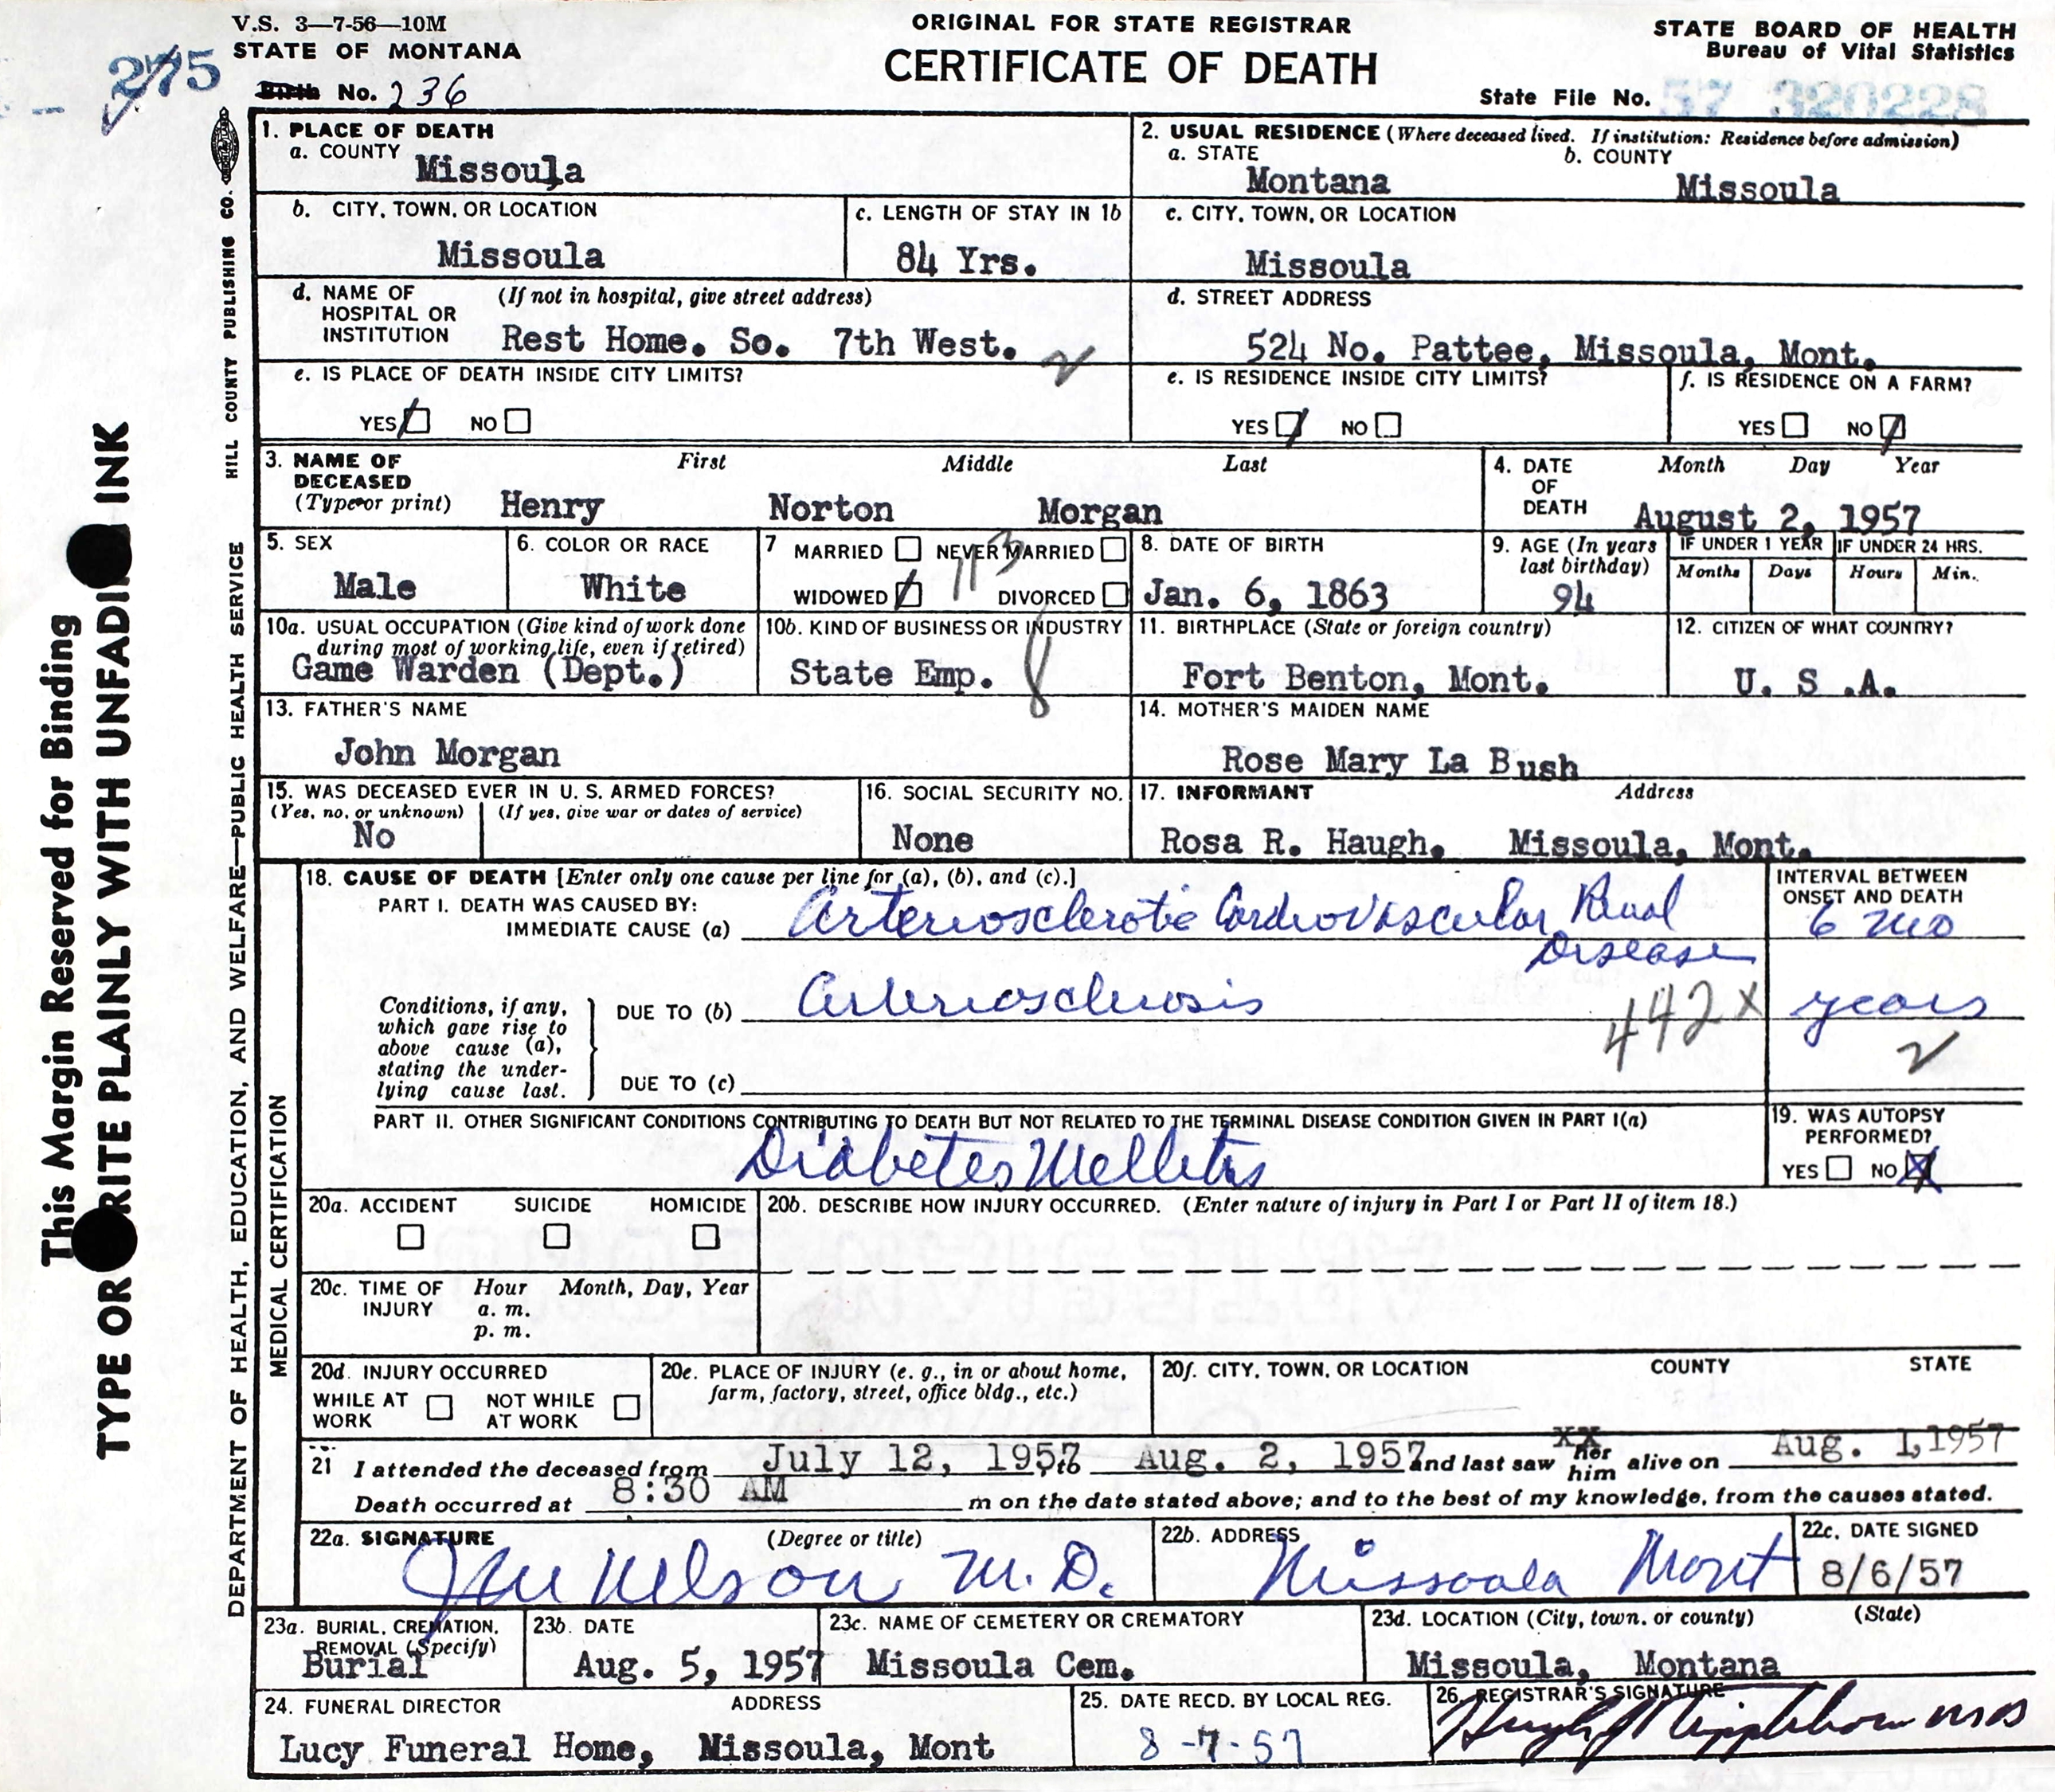 V.S. 3—7-56—10M
STATE OF MONTANA
275
Birth No. 236
ORIGINAL FOR STATE REGISTRAR
CERTIFICATE OF DEATH
STATE BOARD OF HEALTH
Bureau of Vital Statistics
State File No. 57 320228
This Margin Reserved for Binding
TYPE OR RITE PLAINLY WITH UNFADI INK
DEPARTMENT OF HEALTH, EDUCATION, AND WELFARE—PUBLIC HEALTH SERVICE HILL COUNTY PUBLISHING CO.
1. PLACE OF DEATH
a. COUNTY Missoula
2. USUAL RESIDENCE (Where deceased lived. If institution: Residence before admission)
a. STATE Montana b. COUNTY Missoula
b. CITY, TOWN, OR LOCATION Missoula
c. LENGTH OF STAY IN 1b 84 Yrs.
c. CITY, TOWN, OR LOCATION Missoula
d. NAME OF HOSPITAL OR INSTITUTION (If not in hospital, give street address)
Rest Home. So. 7th West.
d. STREET ADDRESS
524 No. Pattee, Missoula, Mont.
e. IS PLACE OF DEATH INSIDE CITY LIMITS?
YES NO
e. IS RESIDENCE INSIDE CITY LIMITS?
YES NO
f. IS RESIDENCE ON A FARM?
YES NO
3. NAME OF DECEASED (Type or print) First Middle Last
Henry Norton Morgan
4. DATE OF DEATH Month Day Year
August 2, 1957
5. SEX
Male
6. COLOR OR RACE
White
7 MARRIED NEVER MARRIED
WIDOWED DIVORCED
113
8. DATE OF BIRTH
Jan. 6, 1863
9. AGE (In years last birthday)
94
IF UNDER 1 YEAR
Months Days
IF UNDER 24 HRS.
Hours Min.
10a. USUAL OCCUPATION (Give kind of work done during most of working life, even if retired)
Game Warden (Dept.)
10b. KIND OF BUSINESS OR INDUSTRY
State Emp.
8
11. BIRTHPLACE (State or foreign country)
Fort Benton, Mont.
12. CITIZEN OF WHAT COUNTRY?
U. S .A.
13. FATHER'S NAME
John Morgan
14. MOTHER'S MAIDEN NAME
Rose Mary La Bush
15. WAS DECEASED EVER IN U. S. ARMED FORCES?
(Yes, no, or unknown) (If yes, give war or dates of service)
No
16. SOCIAL SECURITY NO.
None
17. INFORMANT Address
Rosa R. Haugh, Missoula, Mont.
MEDICAL CERTIFICATION
18. CAUSE OF DEATH [Enter only one cause per line for (a), (b), and (c).]
INTERVAL BETWEEN ONSET AND DEATH
PART I. DEATH WAS CAUSED BY:
IMMEDIATE CAUSE (a) Arteriosclerotic Cardiovascular Renal Disease
6 mo
Conditions, if any, which gave rise to above cause (a), stating the underlying cause last.
DUE TO (b) Arteriosclerosis
years
442X
DUE TO (c)
PART II. OTHER SIGNIFICANT CONDITIONS CONTRIBUTING TO DEATH BUT NOT RELATED TO THE TERMINAL DISEASE CONDITION GIVEN IN PART I(a)
Diabetes Mellitus
19. WAS AUTOPSY PERFORMED?
YES NO
20a. ACCIDENT SUICIDE HOMICIDE
20b. DESCRIBE HOW INJURY OCCURRED. (Enter nature of injury in Part I or Part II of item 18.)
20c. TIME OF INJURY Hour Month, Day, Year
a. m.
p. m.
20d. INJURY OCCURRED
WHILE AT WORK NOT WHILE AT WORK
20e. PLACE OF INJURY (e. g., in or about home, farm, factory, street, office bldg., etc.)
20f. CITY, TOWN, OR LOCATION COUNTY STATE
21 I attended the deceased from July 12, 1957, to Aug. 2, 1957 and last saw her him alive on Aug. 1,1957
xx
Death occurred at 8:30 AM m on the date stated above; and to the best of my knowledge, from the causes stated.
22a. SIGNATURE (Degree or title)
Nelson M.D.
22b. ADDRESS
Missoula Mont
22c. DATE SIGNED
8/6/57
23a. BURIAL, CREMATION, REMOVAL (Specify)
Burial
23b. DATE
Aug. 5, 1957
23c. NAME OF CEMETERY OR CREMATORY
Missoula Cem.
23d. LOCATION (City, town, or county) (State)
Missoula, Montana
24. FUNERAL DIRECTOR ADDRESS
Lucy Funeral Home, Missoula, Mont
25. DATE RECD. BY LOCAL REG.
8-7-57
26. REGISTRAR'S SIGNATURE